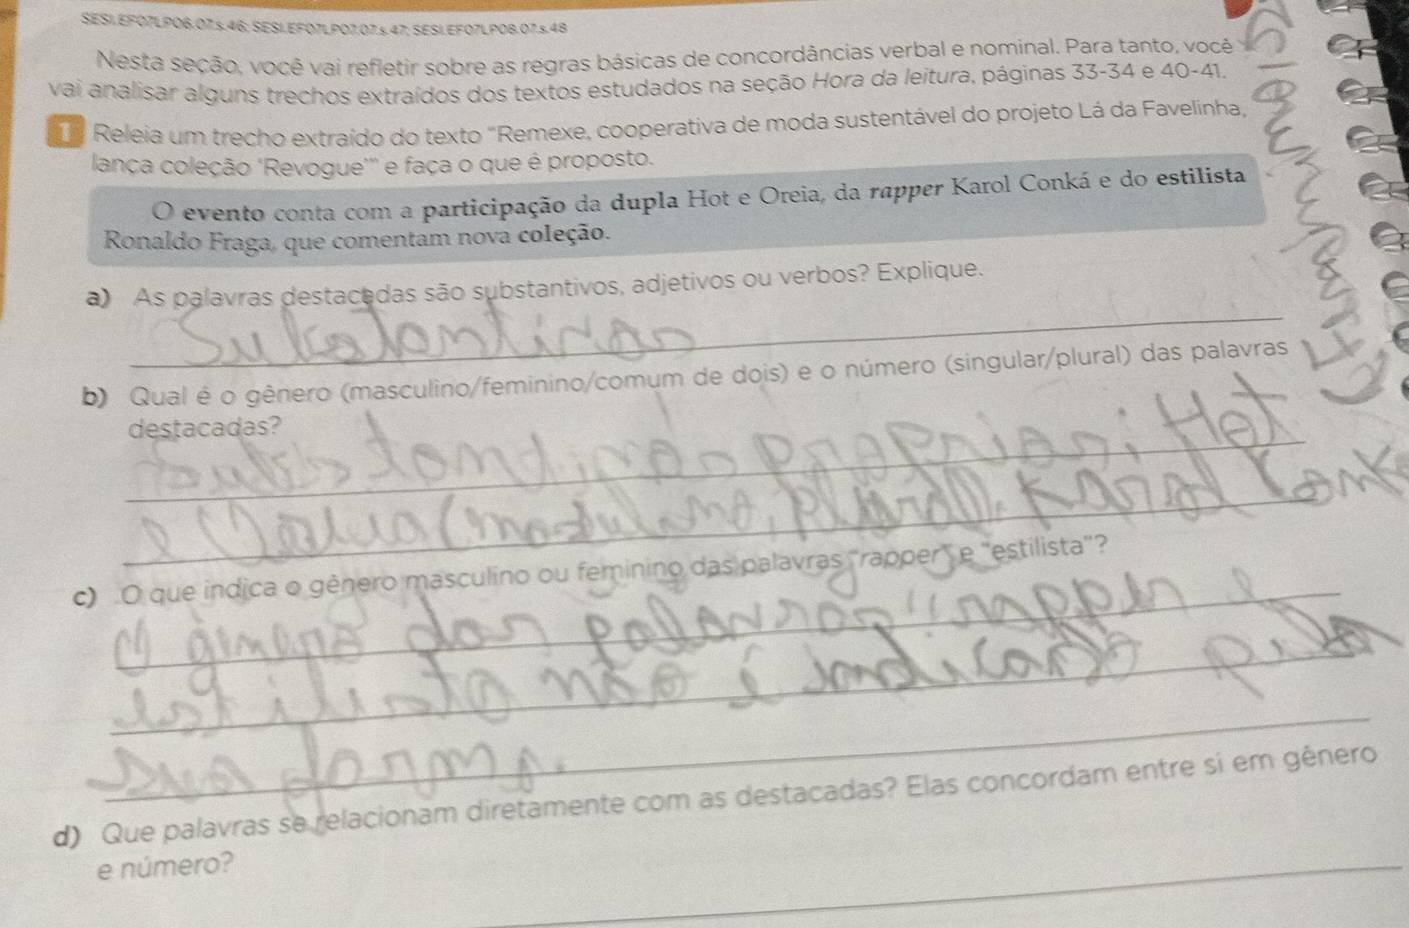 SESI.EF07LP06.07.s.46; SESI.EF07LP07.07.s.47; SESI.EF07LP08.07.s.48
Nesta seção, você vai refletir sobre as regras básicas de concordâncias verbal e nominal. Para tanto, você
vai analisar alguns trechos extraídos dos textos estudados na seção Hora da leitura, páginas 33-34 e 40-41.
1 Releia um trecho extraído do texto "Remexe, cooperativa de moda sustentável do projeto Lá da Favelinha,
lança coleção 'Revogue'" e faça o que é proposto.
O evento conta com a participação da dupla Hot e Oreia, da rapper Karol Conká e do estilista
Ronaldo Fraga, que comentam nova coleção.
a) As palavras destacadas são substantivos, adjetivos ou verbos? Explique.
b) Qual é o gênero (masculino/feminino/comum de dois) e o número (singular/plural) das palavras
destacadas?
Hot
Karol Conk
c) O que indica o gênero masculino ou feminino das palavras "rapper" e "estilista"?
O gênero das palavras "rapper e
estilista não é indicado pela
sua forma.
d) Que palavras se relacionam diretamente com as destacadas? Elas concordam entre si em gênero
e número?